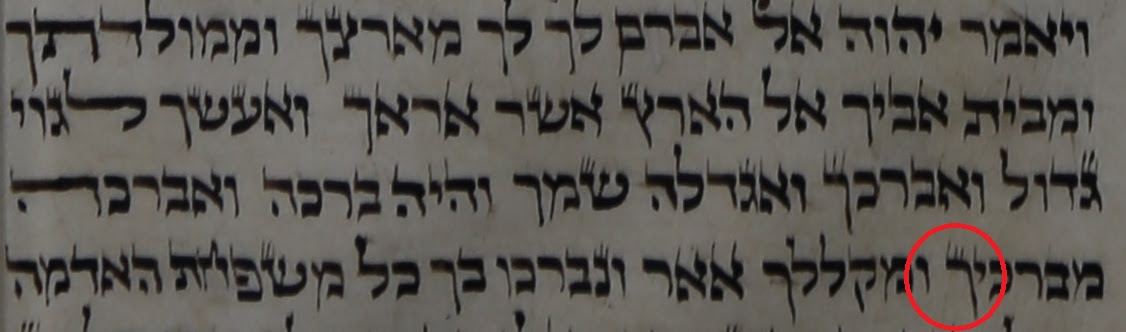 ויאמר יהוה אל אברם לך לך מארצך וממולדתך
ומבית אביך אל הארץ אשר אראך ואעשך לגוי
גדול ואברכך ואגדלה שמך והיה ברכה ואברכה
מברכיך ומקללך אאר ונברכו בך כל משפחת האדמה